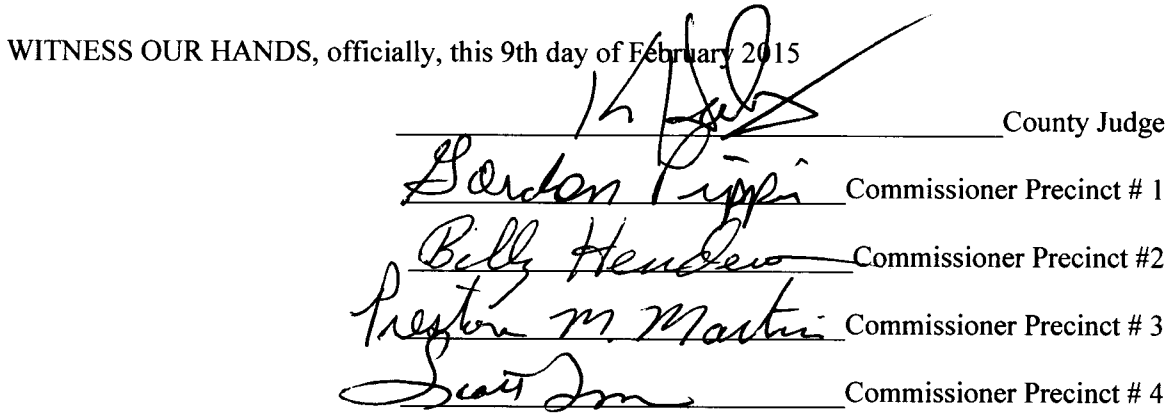 WITNESS OUR HANDS, officially, this 9th day of February 2015
County Judge
Gordon Pippin Commissioner Precinct # 1
Billy Henderson Commissioner Precinct #2
Preston M. Martin Commissioner Precinct # 3
Scott Commissioner Precinct # 4